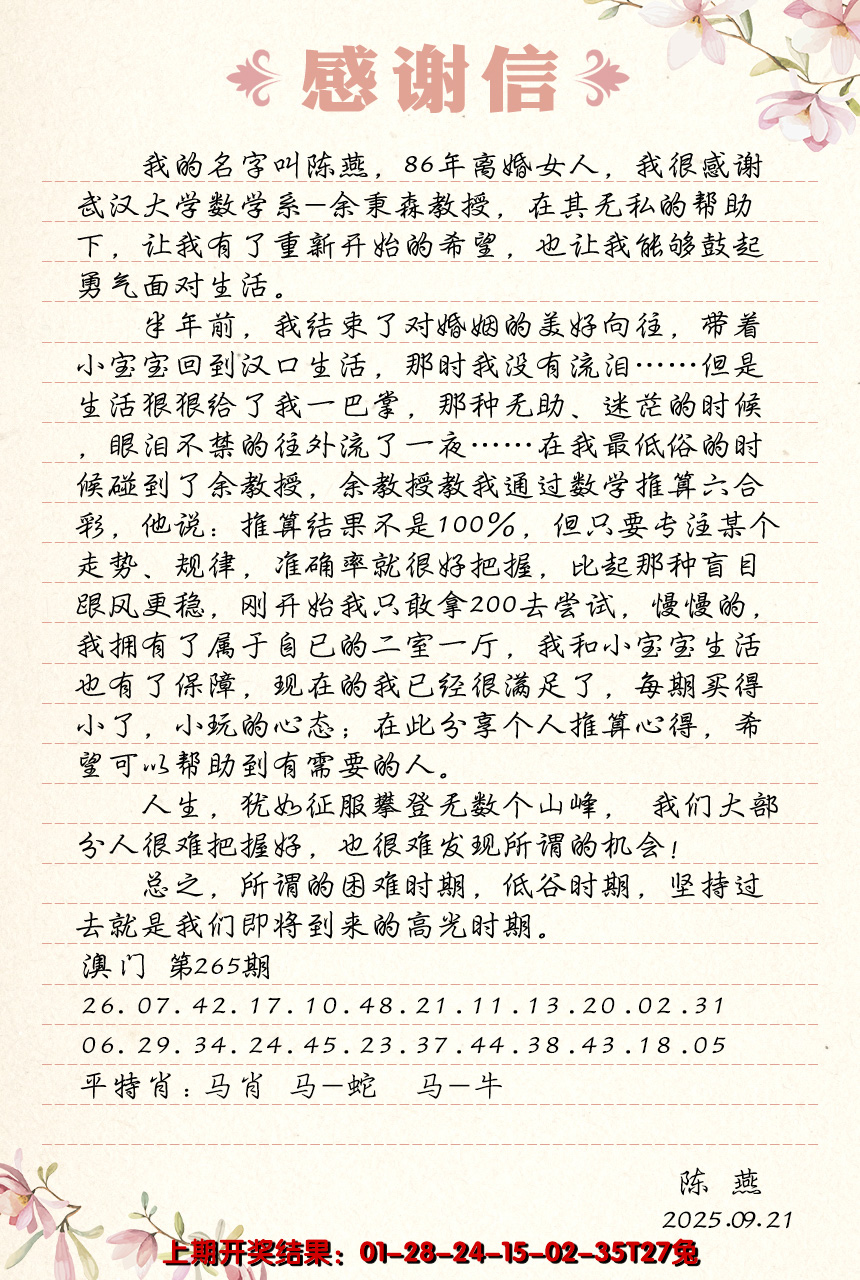 感谢信
我的名字叫陈燕，86年离婚女人，我很感谢
武汉大学数学系-余秉森教授，在其无私的帮助
下，让我有了重新开始的希望，也让我能够鼓起
勇气面对生活。
半年前，我结束了对婚姻的美好向往，带着
小宝宝回到汉口生活，那时我没有流泪……但是
生活狠狠给了我一巴掌，那种无助、迷茫的时候
，眼泪不禁的往外流了一夜……在我最低俗的时
候碰到了余教授，余教授教我通过数学推算六合
彩，他说：推算结果不是100%，但只要专注某个
走势、规律，准确率就很好把握，比起那种盲目
跟风更稳，刚开始我只敢拿200去尝试，慢慢的，
我拥有了属于自已的二室一厅，我和小宝宝生活
也有了保障，现在的我已经很满足了，每期买得
小了，小玩的心态；在此分享个人推算心得，希
望可以帮助到有需要的人。
人生，犹如征服攀登无数个山峰， 我们大部
分人很难把握好，也很难发现所谓的机会！
总之，所谓的困难时期，低谷时期，坚持过
去就是我们即将到来的高光时期。
澳门 第265期
26.07.42.17.10.48.21.11.13.20.02.31
06.29.34.24.45.23.37.44.38.43.18.05
平特肖：马肖 马-蛇 马-牛
陈 燕
2025.09.21
上期开奖结果：01-28-24-15-02-35T27兔